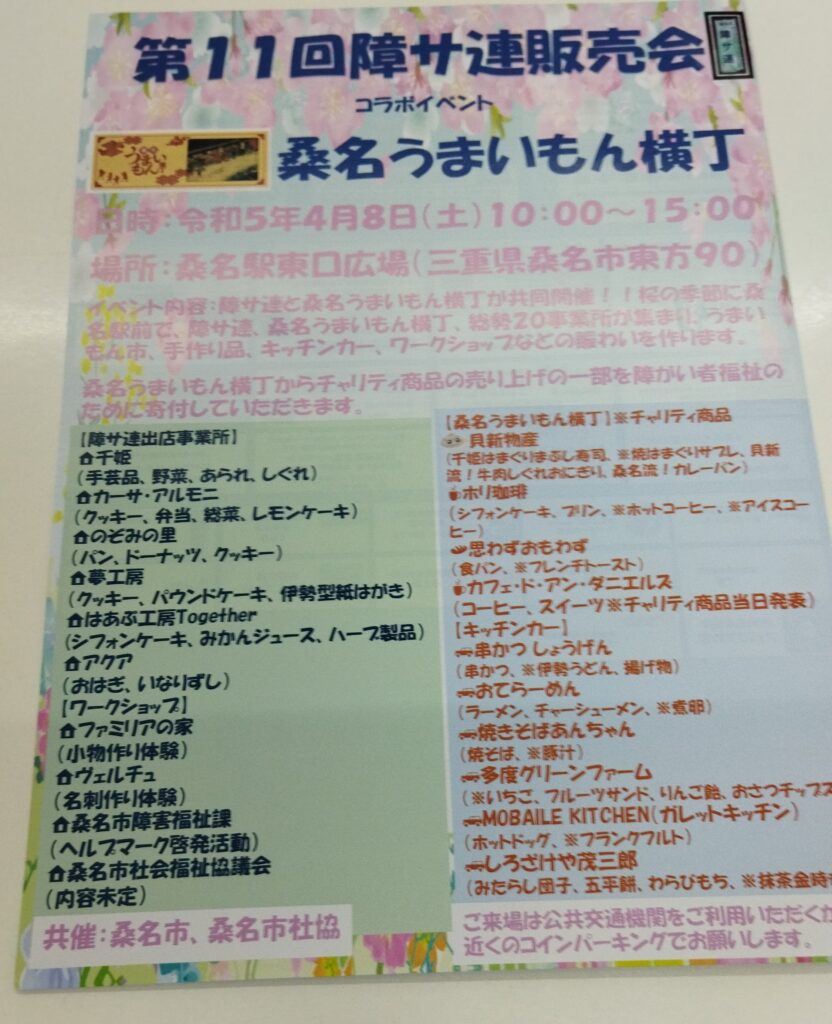 第11回障サ連販売会
障サ連
コラボイベント
うまいもん
桑名うまいもん横丁
日時：令和5年4月8日（土）10：00～15：00
場所：桑名駅東口広場（三重県桑名市東方90）
イベント内容：障サ連と桑名うまいもん横丁が共同開催！！桜の季節に桑
名駅前で、障サ連、桑名うまいもん横丁、総勢20事業所が集まり、うまい
もん市、手作り品、キッチンカー、ワークショップなどの賑わいを作ります。
桑名うまいもん横丁からチャリティ商品の売り上げの一部を障がい者福祉の
ために寄付していただきます。
【障サ連出店事業所】
千姫
（手芸品、野菜、あられ、しぐれ）
カーサ・アルモニ
（クッキー、弁当、総菜、レモンケーキ）
のぞみの里
（パン、ドーナッツ、クッキー）
夢工房
（クッキー、パウンドケーキ、伊勢型紙はがき）
はあぶ工房Together
（シフォンケーキ、みかんジュース、ハーブ製品）
アクア
（おはぎ、いなりずし）
【ワークショップ】
ファミリアの家
（小物作り体験）
ヴェルチュ
（名刺作り体験）
桑名市障害福祉課
（ヘルプマーク啓発活動）
桑名市社会福祉協議会
（内容未定）
共催：桑名市、桑名市社協
【桑名うまいもん横丁】※チャリティ商品
貝新物産
（千姫はまぐりまぶし寿司、※焼はまぐりサブレ、貝新
流！牛肉しぐれおにぎり、桑名流！カレーパン）
ホリ珈琲
（シフォンケーキ、プリン、※ホットコーヒー、※アイスコー
ヒー）
思わずおもわず
（食パン、※フレンチトースト）
カフェ・ド・アン・ダニエルズ
（コーヒー、スイーツ※チャリティ商品当日発表）
【キッチンカー】
串かつ しょうげん
（串かつ、※伊勢うどん、揚げ物）
おてらーめん
（ラーメン、チャーシューメン、※煮卵）
焼きそばあんちゃん
（焼そば、※豚汁）
多度グリーンファーム
（※いちご、フルーツサンド、りんご飴、おさつチップス
MOBAILE KITCHEN（ガレットキッチン）
（ホットドッグ、※フランクフルト）
しろざけや茂三郎
（みたらし団子、五平餅、わらびもち、※抹茶金時
ご来場は公共交通機関をご利用いただくか
近くのコインパーキングでお願いします。